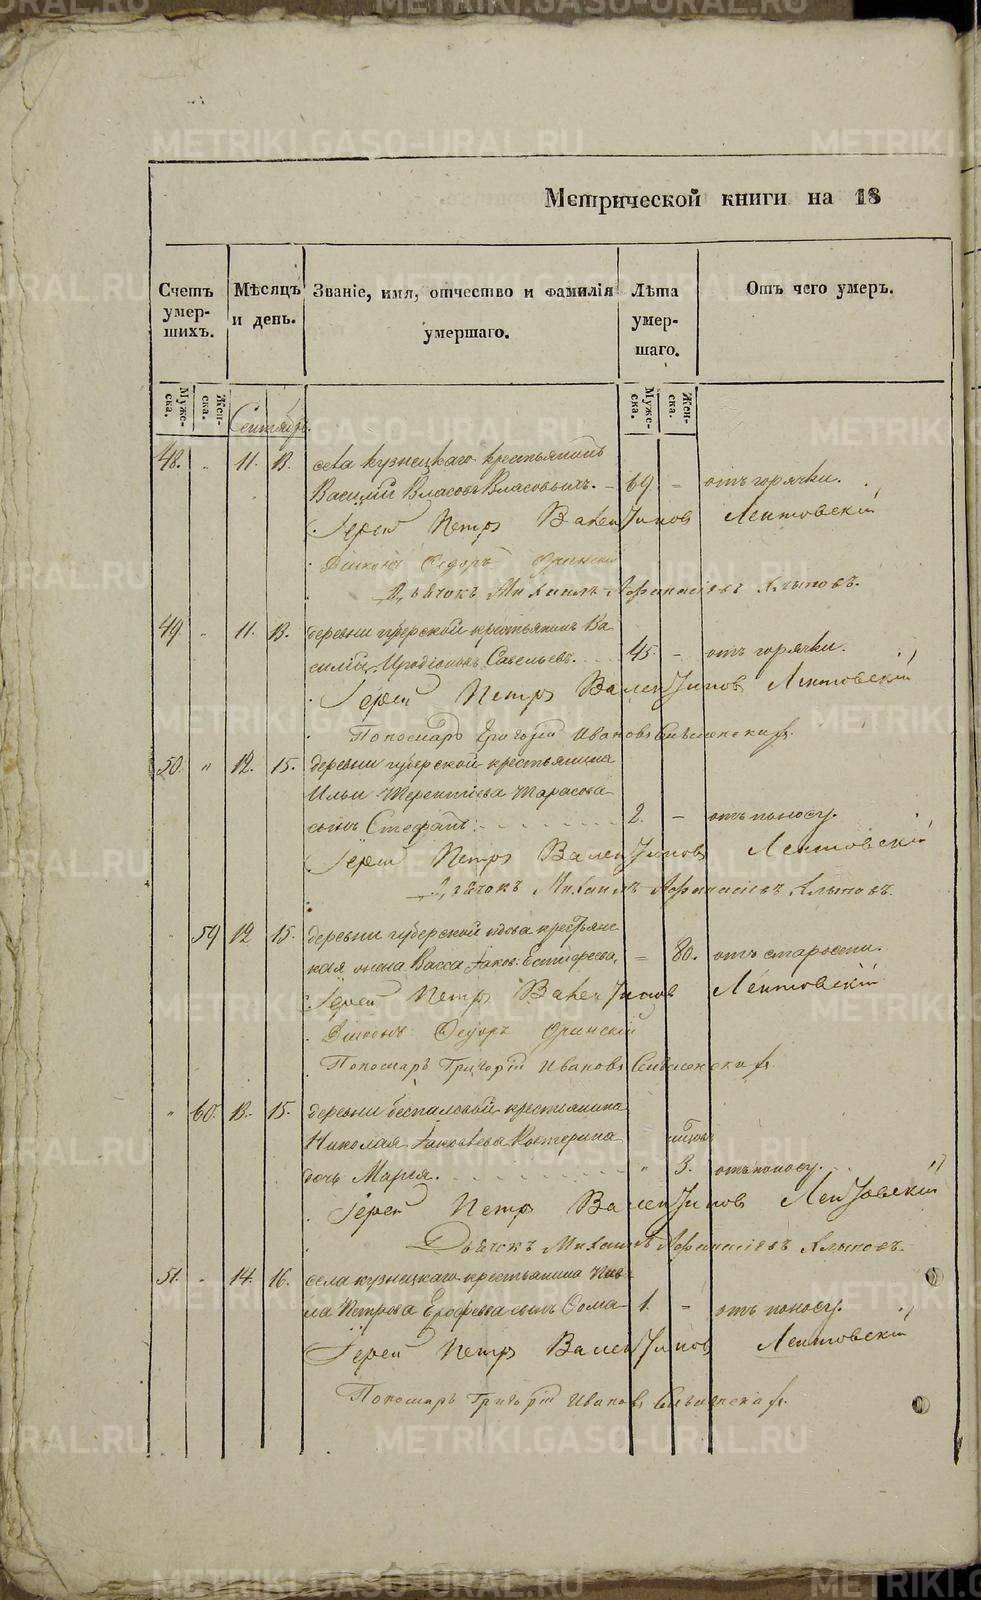 METRIKI.GASO-URAL.RU
Метрической книги на 18
Счетъ умер-шихъ. Мѣсяцъ и день. Званіе, имя, отчество и фамилія умершаго. Лѣта умер-шаго. Отъ чего умеръ.
Муже-ска. Жен-ска. Муже-ска. Жен-ска.
Сентябрь.
48. " 11. 13. села кузнецкаго крестьянинъ
Василий Власовъ Власовыхъ. 69 - отъ горячки.
Іерей Петръ Валентиновъ Лентовскій
Діаконъ Ѳедоръ
Дьячокъ Михаилъ Афанасіевъ Клыповъ.
49. " 11. 13. деревни губерской крестьянинъ Ва-
силий Иродіоновъ Савельевъ. 45. - отъ горячки.
Іерей Петръ Валентиновъ Лентовскій
Пономарь Григорій Ивановъ
50. " 12. 15. деревни губерской крестьянина
Ильи Терентиева Тарасова
сынъ Стефанъ. 2. - отъ поносу.
Іерей Петръ Валентиновъ Лентовскій
Дьячокъ Михаилъ Афанасіевъ Клыповъ.
" 59 12 15. деревни губерской вдова крестьянс-
кая жена Васса Іаков: Естифеева, - 80. отъ старости.
Іерей Петръ Валентиновъ Лентовскій
Діаконъ Ѳедоръ
Пономарь Григорій Ивановъ
" 60. 13. 15. деревни беспаловой крестьянина
Николая Іаковлева Костерина
дочь Марія. " 3. отъ поносу.
Іерей Петръ Валентиновъ Лентовскій
Дьячокъ Михаилъ Афанасіевъ Клыповъ.
51. " 14. 16. села кузнецкаго крестьянина Пав-
ла Петрова Ерофеева сынъ Ѳома 1. - отъ поносу.
Іерей Петръ Валентиновъ Лентовскій
Пономарь Григорій Ивановъ